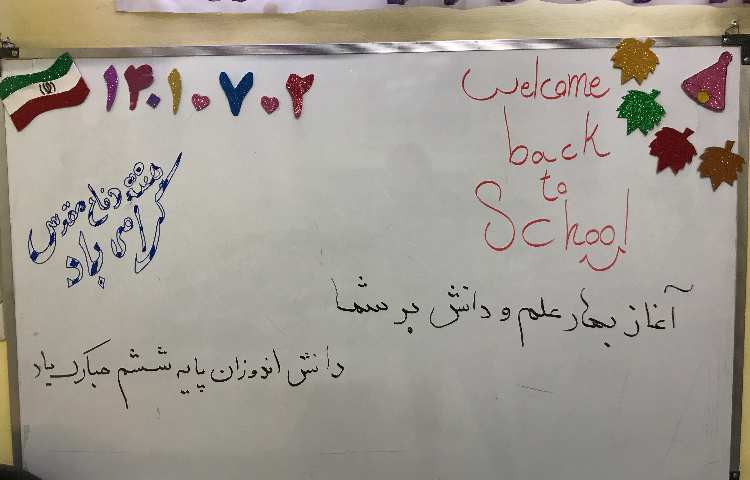 ۱۴۰۱.۷.۲
welcome
back
to
School
هفته دفاع مقدس
گرامی باد
آغاز بهار علم و دانش بر شما
دانش اندوزان پایه ششم مبارک باد